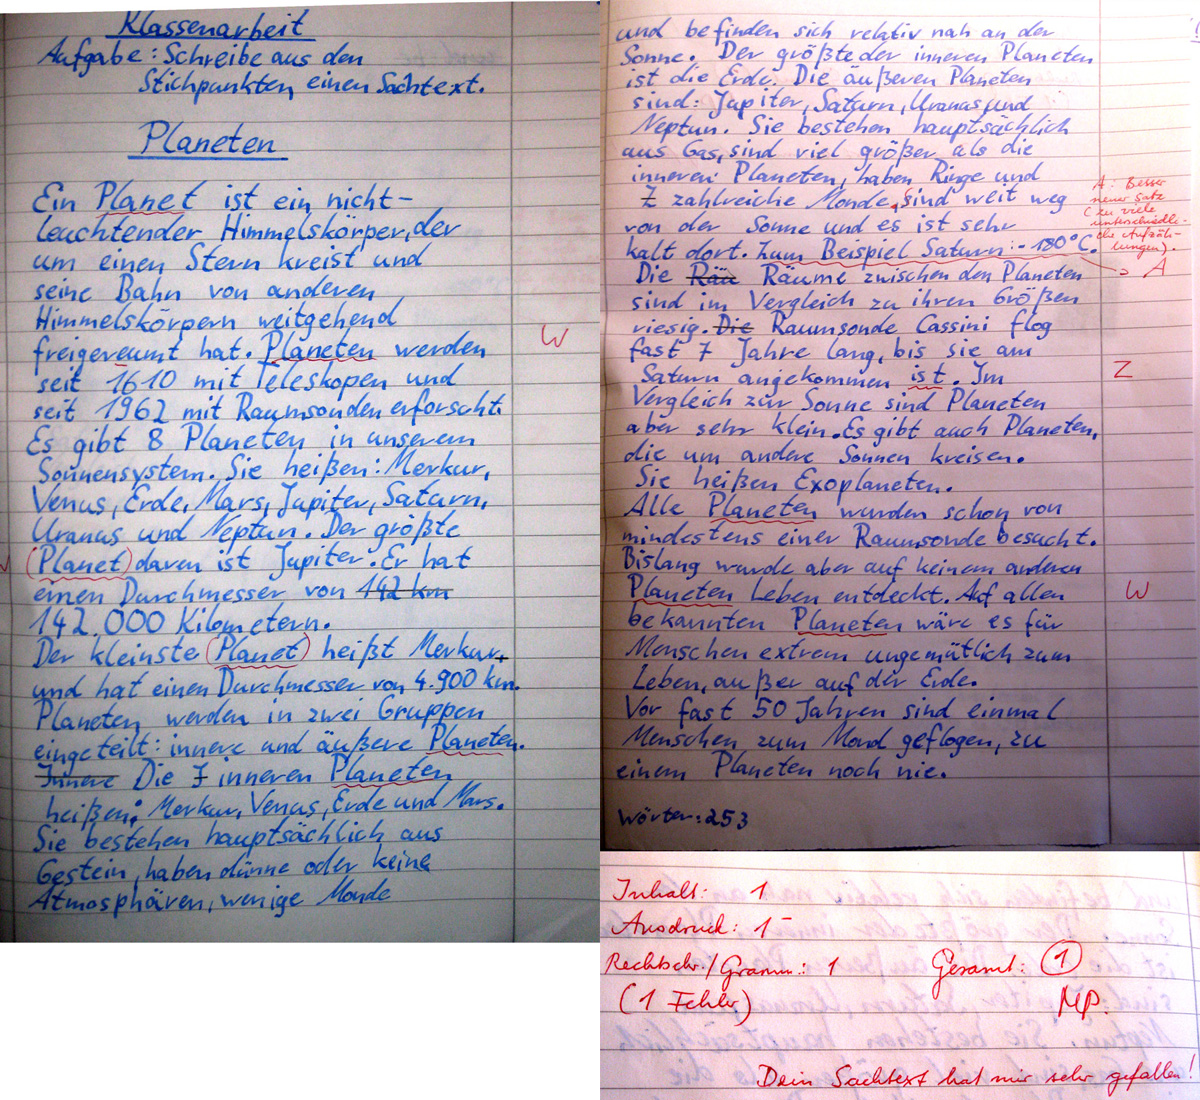 Klassenarbeit
Aufgabe: Schreibe aus den
Stichpunkten einen Sachtext.
Planeten
Ein Planet ist ein nicht-
leuchtender Himmelskörper, der
um einen Stern kreist und
seine Bahn von anderen
Himmelskörpern weitgehend
freigereumt hat. Planeten werden
W
seit 1610 mit Teleskopen und
seit 1962 mit Raumsonden erforscht.
Es gibt 8 Planeten in unserem
Sonnensystem. Sie heißen: Merkur,
Venus, Erde, Mars, Jupiter, Saturn,
Uranus und Neptun. Der größte
(Planet) davon ist Jupiter. Er hat
einen Durchmesser von 142 km
142.000 Kilometern.
Der kleinste (Planet) heißt Merkur,
und hat einen Durchmesser von 4.900 km.
Planeten werden in zwei Gruppen
eingeteilt: innere und äußere Planeten.
Innere Die I inneren Planeten
heißen: Merkur, Venus, Erde und Mars.
Sie bestehen hauptsächlich aus
Gestein, haben dünne oder keine
Atmosphären, wenige Monde
und befinden sich relativ nah an der
Sonne. Der größte der inneren Planeten
ist die Erde. Die äußeren Planeten
sind: Jupiter, Saturn, Uranus und
Neptun. Sie bestehen hauptsächlich
aus Gas, sind viel größer als die
inneren Planeten, haben Ringe und
Z zahlreiche Monde, sind weit weg
von der Sonne und es ist sehr
kalt dort. Zum Beispiel Saturn: -180°C.
A: Besser
neuer Satz
(zu viele
unterschiedli-
che Aufzäh-
lungen).
A
Die Räu Räume zwischen den Planeten
sind im Vergleich zu ihren Größen
riesig. Die Raumsonde Cassini flog
fast 7 Jahre lang, bis sie am
Saturn angekommen ist. Im
Z
Vergleich zur Sonne sind Planeten
aber sehr klein. Es gibt auch Planeten,
die um andere Sonnen kreisen.
Sie heißen Exoplaneten.
Alle Planeten wurden schon von
mindestens einer Raumsonde besucht.
Bislang wurde aber auf keinem anderen
Planeten Leben entdeckt. Auf allen
W
bekannten Planeten wäre es für
Menschen extrem ungemütlich zum
Leben, außer auf der Erde.
Vor fast 50 Jahren sind einmal
Menschen zum Mond geflogen, zu
einem Planeten noch nie.
Wörter: 253
Inhalt: 1
Ausdruck: 1-
Rechtschr./Gramm.: 1 Gesamt: 1
(1 Fehler) MP.
Dein Sachtext hat mir sehr gefallen!